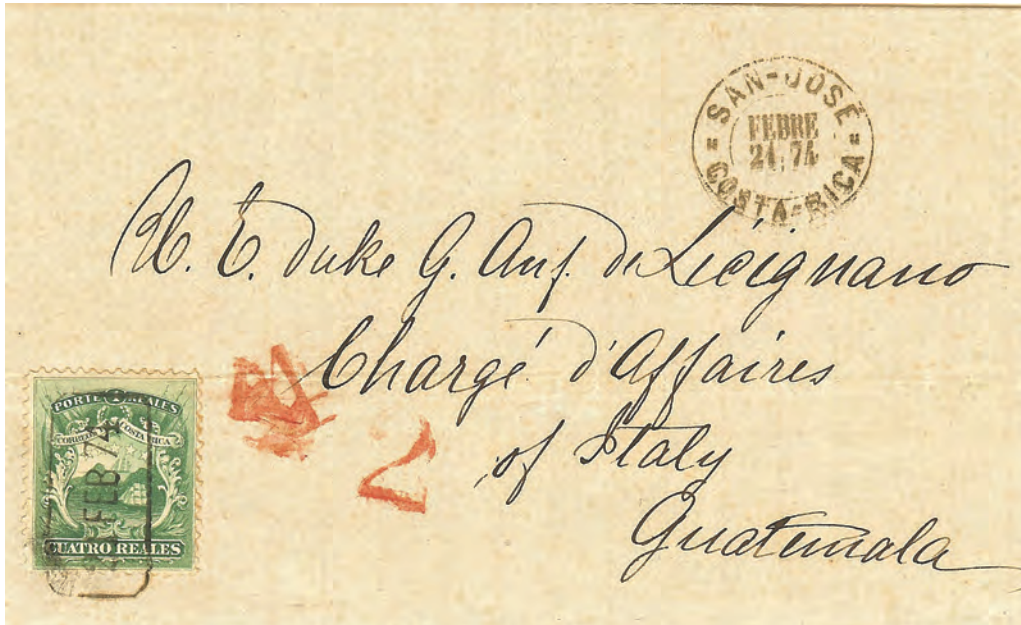 SAN-JOSÉ
FEBRE
24, 74
COSTA-RICA
E. Duke G. Anf. de Licignano
Chargé d'Affaires
of Italy
Guatemala
PORTE 4 REALES
CORREOS COSTA RICA
FEB 74
CUATRO REALES
2